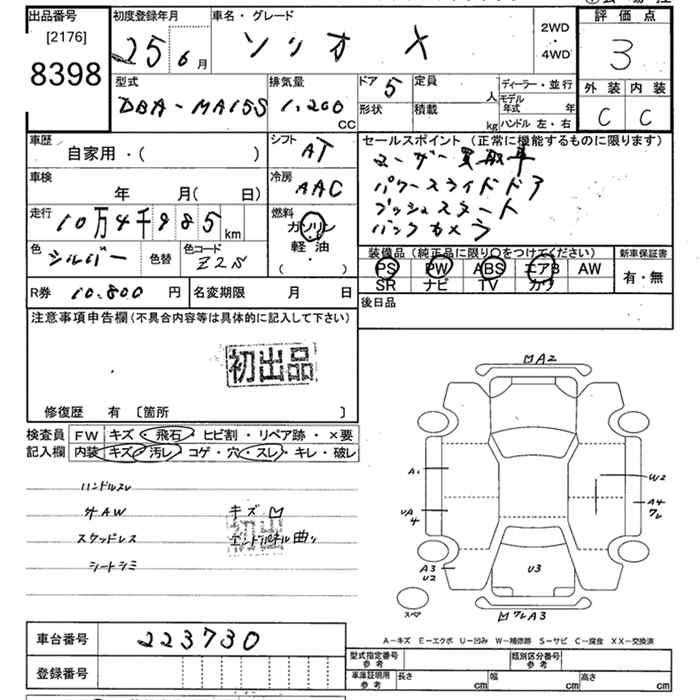 出品番号
[2176]
8398
初度登録年月
25 6月
車名・グレード
ソリオ X
2WD
・
4WD
評価点
3
外装 内装
C C
型式
DBA-MA15S
排気量
1,200
CC
ドア 5
定員
人
形状
積載
kg
ディーラー・並行
モデル年式 年
ハンドル 左・右
車歴
自家用・( )
シフト
AT
車検
年 月( 日)
冷房
AAC
走行
10万4千985 km
燃料
ガソリン
・
軽油
( )
色
シルバー
色替
色コード
Z2S
R券 10.800 円
名変期限 月 日
セールスポイント (正常に機能するものに限ります)
ユーザー買取車
パワースライドドア
プッシュスタート
バックカメラ
装備品 (純正品に限り〇をつけてください)
PS PW ABS エアB AW
SR ナビ TV カワ
新車保証書
有・無
後日品
注意事項申告欄(不具合内容等は具体的に記入して下さい)
初出品
修復歴 有 〔箇所 〕
検査員
記入欄
FW キズ・飛石・ヒビ割・リペア跡・×要
内装 キズ・汚レ・コゲ・穴・スレ・キレ・破レ
ハンドルスレ
外AW
スタッドレス
シートシミ
キズ凹
初出
エンドパネル曲リ
凹A2
A1
W2
A4
ワレ
VA
4
A3
U2
U3
スペア
凹ワレA3
A-キズ E-エクボ U-凹み W-補修跡 S-サビ C-腐食 XX-交換済
車台番号
223730
登録番号
型式指定番号
参考
類別区分番号
参考
車庫証明用
参考
長さ cm
幅 cm
高さ cm